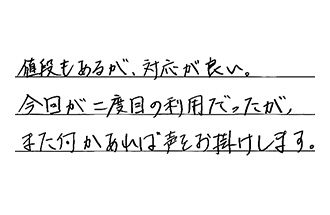 値段もあるが、対応が良い。
今回が二度目の利用だったが、
また何かあれば声をお掛けします。